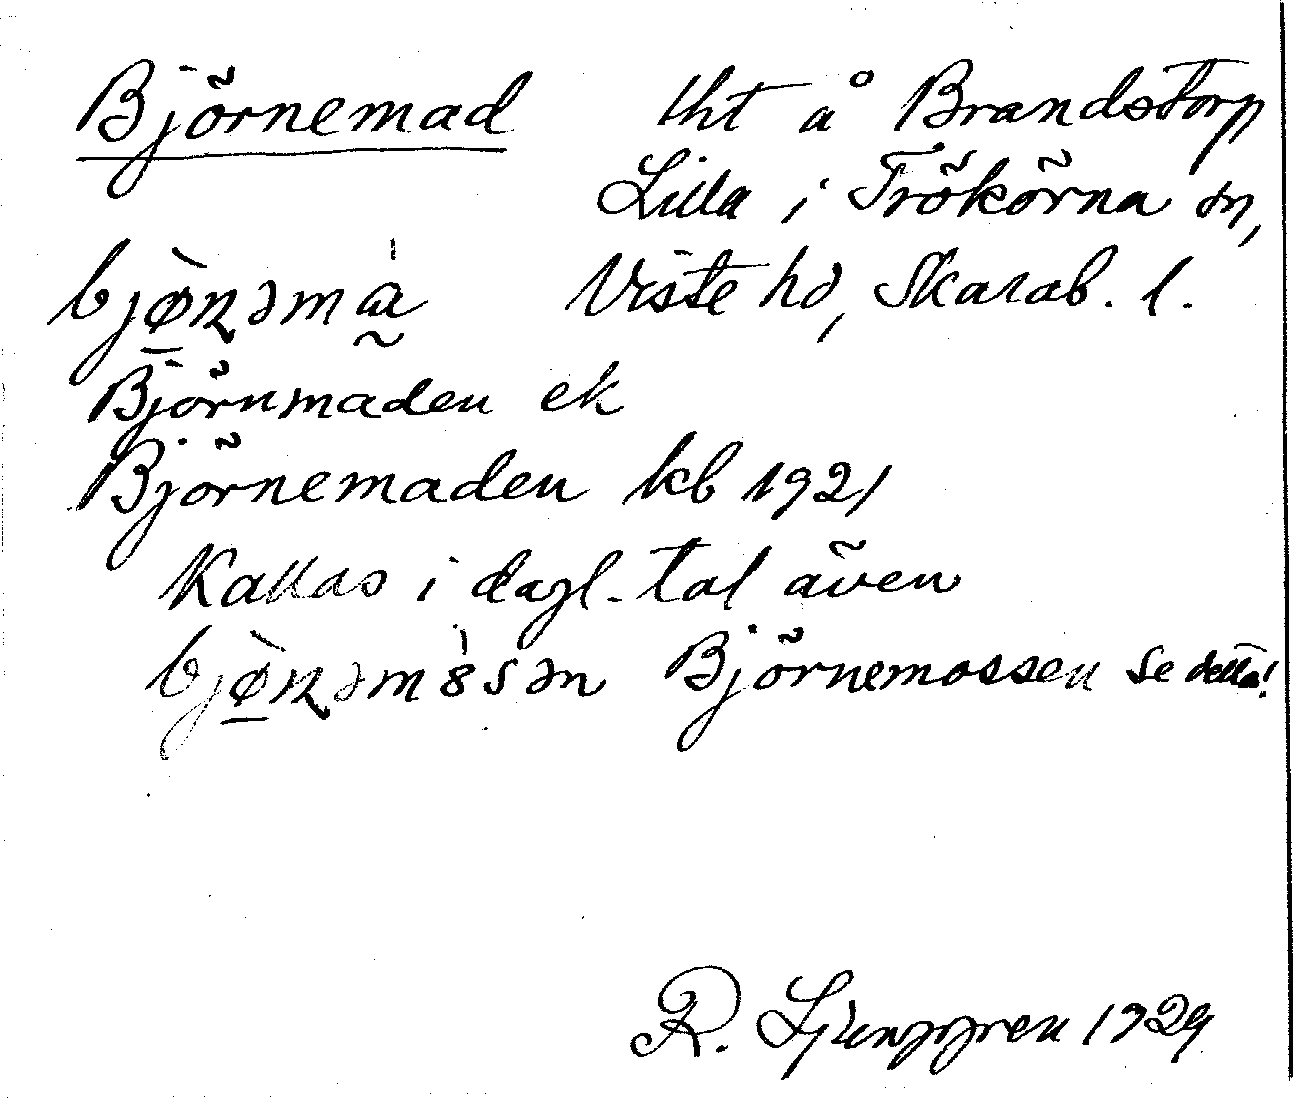 Björnemad lht å Brandstorp
Lilla i Trökörna sn,
bjø̠̀ɳəmà̰ Viste hd, Skarab. l.
Björnmaden ek
Björnemaden kb 1921
Kallas i dagl. tal även
bjø̠̀ɳəm8́sən Björnemossen se detta!
R. Ljunggren 1929